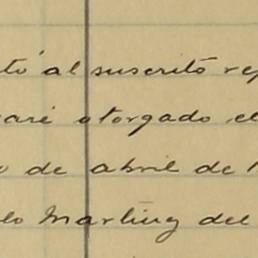 tó al suscrito rep
aré otorgado el
o de abril de 1
lo Martinez del